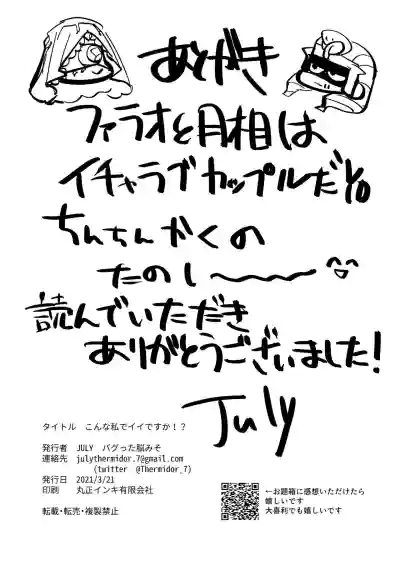 あとがき
ファラオと月相は
イチャラブカップルだYo
ちんちんかくの
たのし〜
読んでいただき
ありがとうございました!
July
タイトル こんな私でイイですか!?
発行者 JULY バグった脳みそ
連絡先 julythermidor.7@gmail.com
(twitter @Thermidor_7)
発行日 2021/3/21
印刷 丸正インキ有限会社
転載・転売・複製禁止
←お題箱に感想いただけたら
嬉しいです
大喜利でも嬉しいです